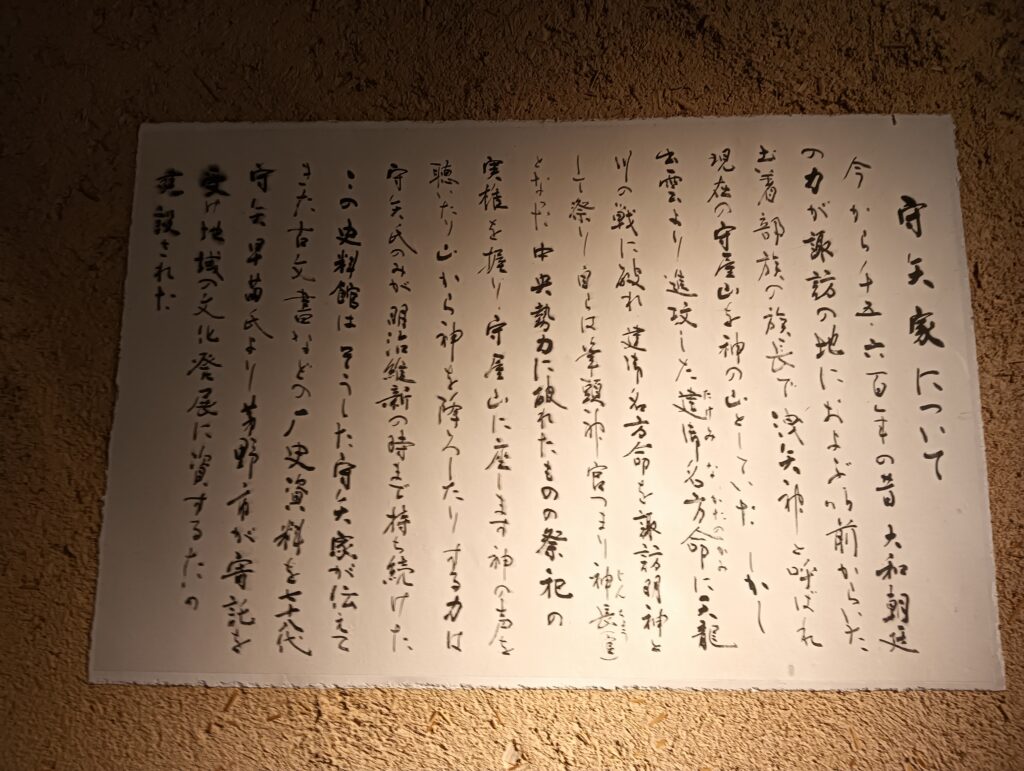 守矢家について
今から千五・六百年の昔 大和朝廷
の力が諏訪の地におよぶ以前からいた
土着部族の族長で 洩矢神と呼ばれ
現在の守屋山を神の山としていた しかし
出雲より進攻した建御名方命に天龍
たけみなかたのかみ
川の戦に破れ 建御名方命を諏訪明神と
して祭り 自らは筆頭神官つまり神長(官)
じんちょう
となった 中央勢力に破れたものの祭祀の
実権を握り 守屋山に座します神の声を
聴いたり山から神を降ろしたりする力は
守矢氏のみが明治維新の時まで持ち続けた
この史料館はそうした守矢家が伝えて
きた古文書などの歴史資料を七十八代
守矢早苗氏より茅野市が寄託を
受け地域の文化発展に資するため
建設された